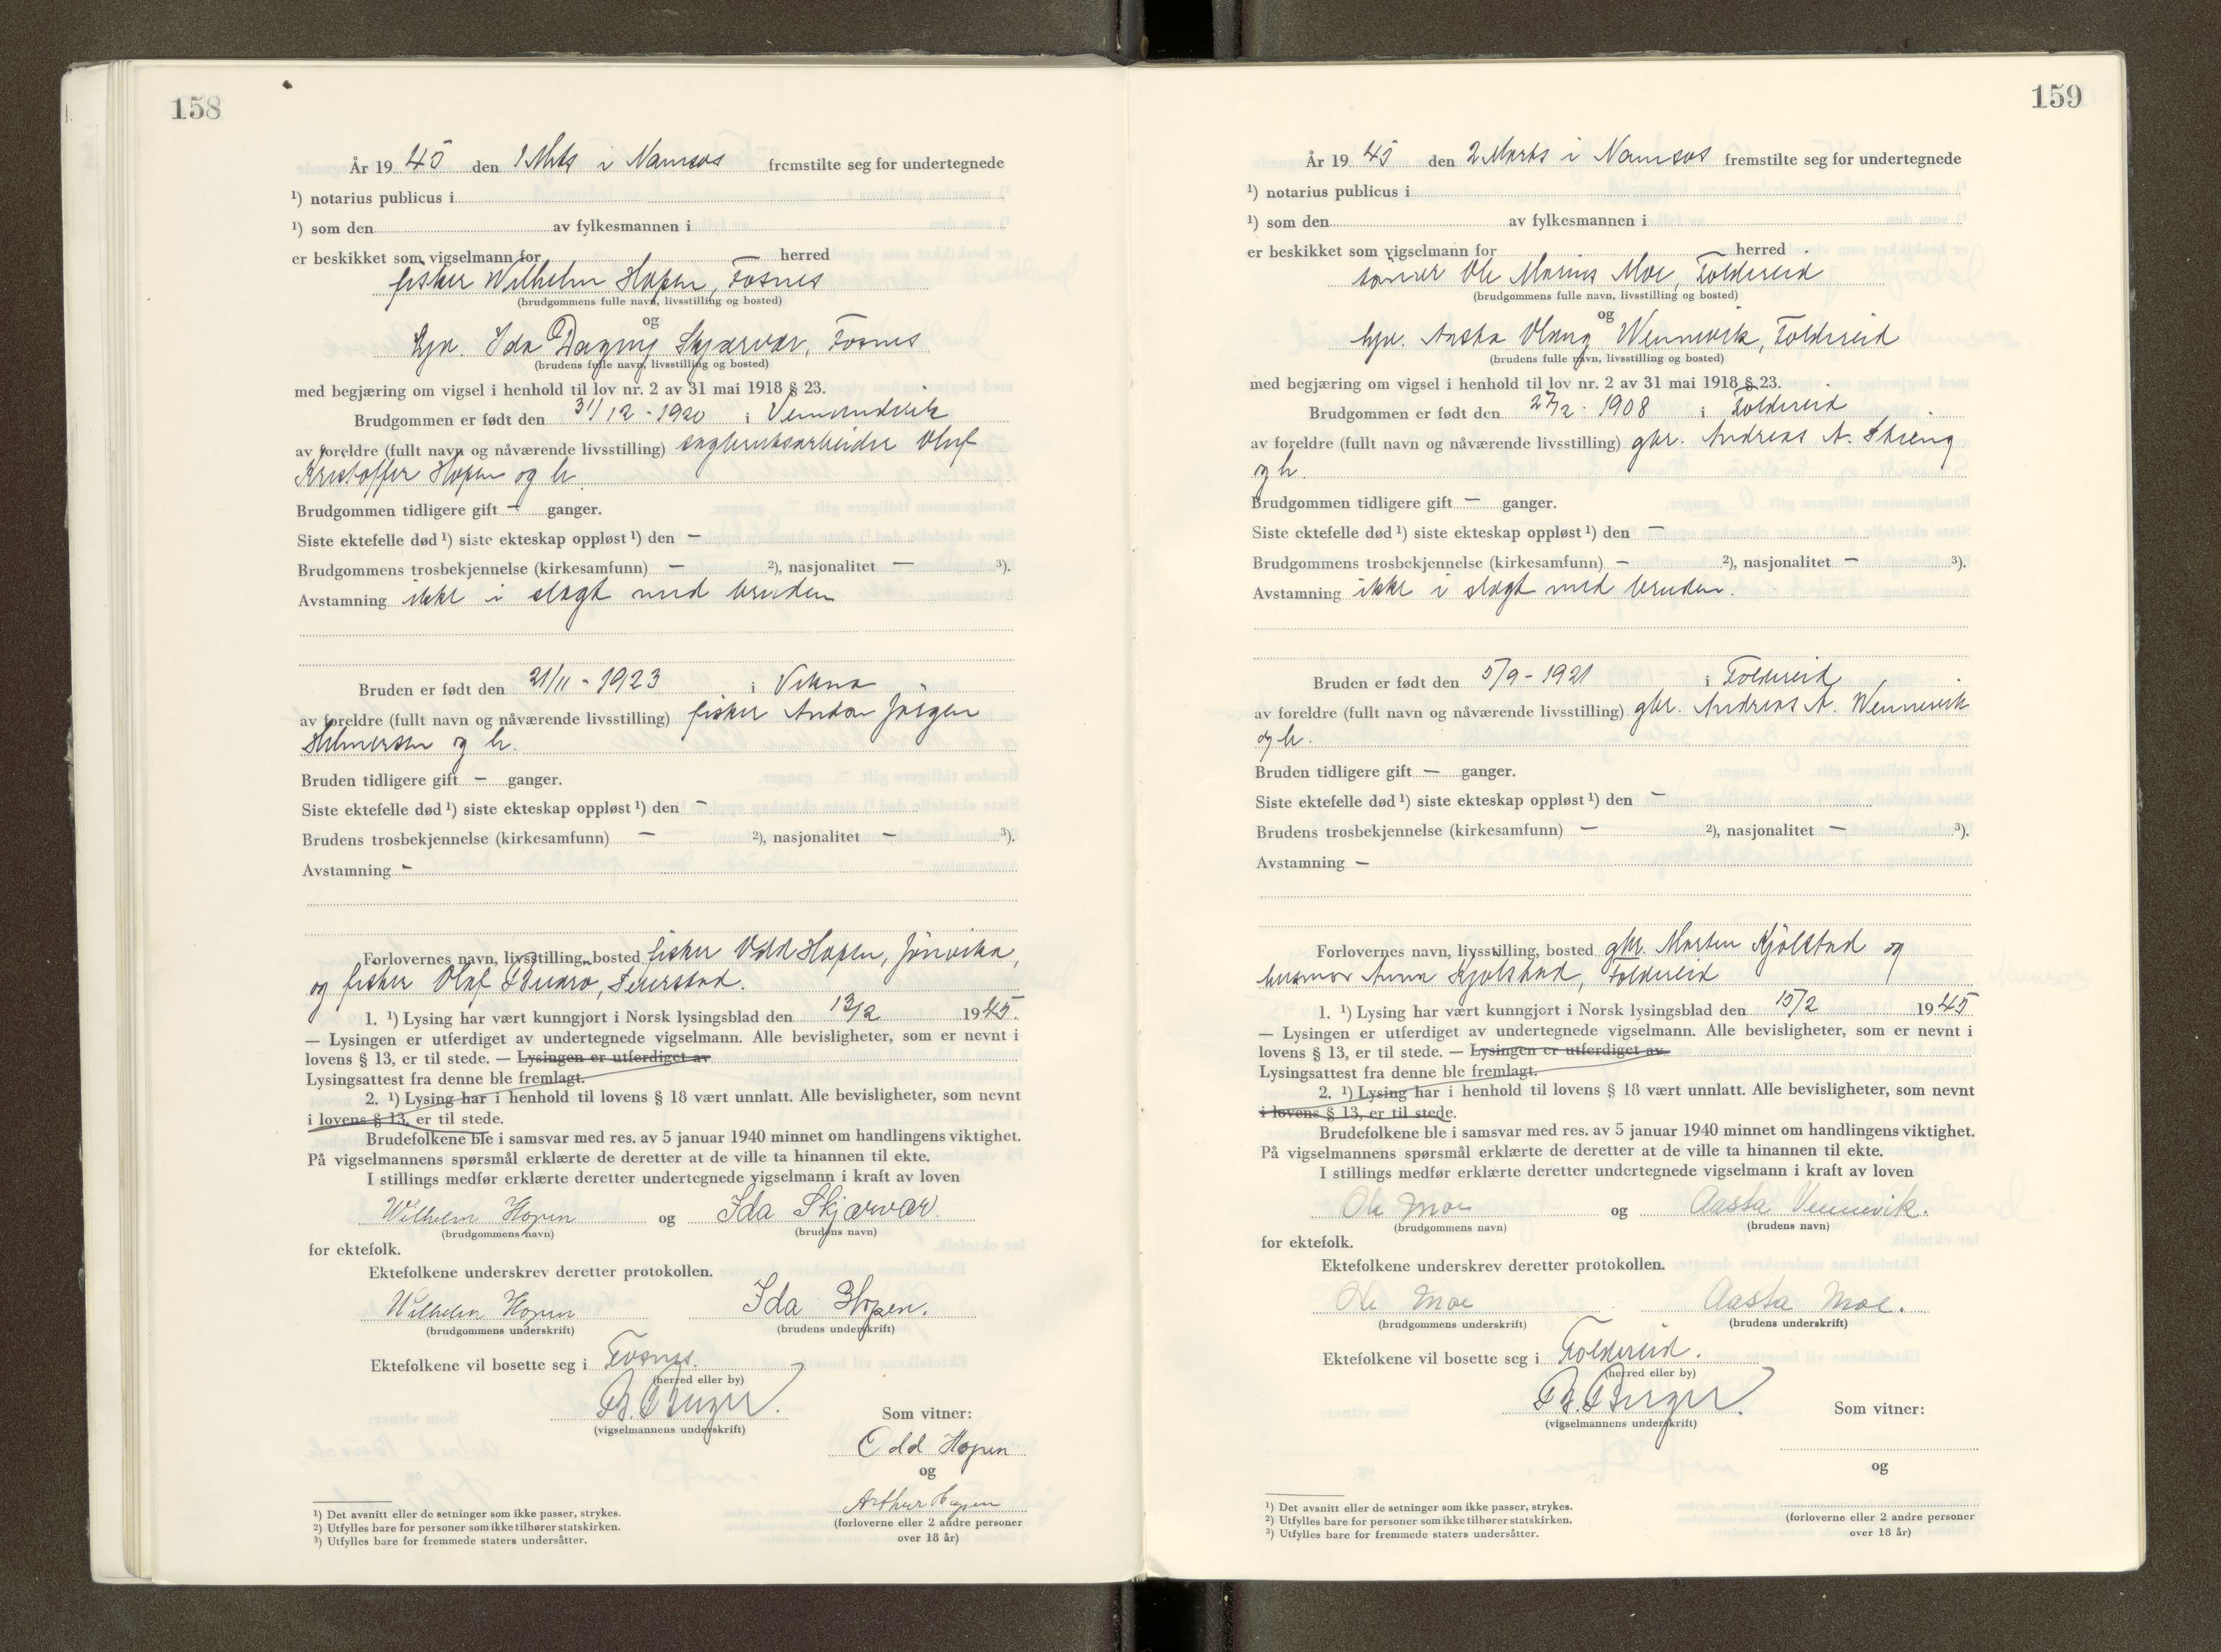 158
År 19 45 den 1 Mrts i Namsos fremstilte seg for undertegnede
¹) notarius publicus i
¹) som den av fylkesmannen i
er beskikket som vigselmann for herred
fisker Wilhelm Hopen, Fosnes
(brudgommens fulle navn, livsstilling og bosted)
og
Ida Dagny Skjærvær, Fosnes
(brudens fulle navn, livsstilling og bosted)
med begjæring om vigsel i henhold til lov nr. 2 av 31 mai 1918 § 23.
Brudgommen er født den 31/12 - 1920 i Vemundvik
av foreldre (fullt navn og nåværende livsstilling) sagbruksarbeider Oluf
Kristoffer Hopen og h.
Brudgommen tidligere gift — ganger.
Siste ektefelle død ¹) siste ekteskap oppløst ¹) den —
Brudgommens trosbekjennelse (kirkesamfunn) — ²), nasjonalitet — ³).
Avstamning ikke i slagt med bruden
Bruden er født den 21/11 - 1923 i Vikna
av foreldre (fullt navn og nåværende livsstilling) fisker Anton Jörgen
Hilmersen og h.
Bruden tidligere gift — ganger.
Siste ektefelle død ¹) siste ekteskap oppløst ¹) den —
Brudens trosbekjennelse (kirkesamfunn) — ²), nasjonalitet — ³).
Avstamning —
Forlovernes navn, livsstilling, bosted fisker Odd Hopen, Jönvika,
og fisker Olaf Buarø, Seierstad.
1. ¹) Lysing har vært kunngjort i Norsk lysingsblad den 13/2 1945.
— Lysingen er utferdiget av undertegnede vigselmann. Alle bevisligheter, som er nevnt i
lovens § 13, er til stede. — Lysingen er utferdiget av
Lysingsattest fra denne ble fremlagt.
2. ¹) Lysing har i henhold til lovens § 18 vært unnlatt. Alle bevisligheter, som nevnt
i lovens § 13, er til stede.
Brudefolkene ble i samsvar med res. av 5 januar 1940 minnet om handlingens viktighet.
På vigselmannens spørsmål erklærte de deretter at de ville ta hinannen til ekte.
I stillings medfør erklærte deretter undertegnede vigselmann i kraft av loven
Wilhelm Hopen og Ida Skjærvær.
(brudgommens navn) (brudens navn)
for ektefolk.
Ektefolkene underskrev deretter protokollen.
Wilhelm Hopen Ida Hopen.
(brudgommens underskrift) (brudens underskrift)
Ektefolkene vil bosette seg i Fosnes.
(herred eller by)
(vigselmannens underskrift)
Som vitner:
Odd Hopen
og
Arthur Hopen
(forloverne eller 2 andre personer
over 18 år)
¹) Det avsnitt eller de setninger som ikke passer, strykes.
²) Utfylles bare for personer som ikke tilhører statskirken.
³) Utfylles bare for fremmede staters undersåtter.
159
År 19 45 den 2 Marts i Namsos fremstilte seg for undertegnede
¹) notarius publicus i
¹) som den av fylkesmannen i
er beskikket som vigselmann for herred
Ole Marius Moe, Foldereid
(brudgommens fulle navn, livsstilling og bosted)
og
Aasta Olaug Wennevik, Foldereid
(brudens fulle navn, livsstilling og bosted)
med begjæring om vigsel i henhold til lov nr. 2 av 31 mai 1918 § 23.
Brudgommen er født den 27/2 - 1908 i Foldereid
av foreldre (fullt navn og nåværende livsstilling) gbr. Andreas A.
og h.
Brudgommen tidligere gift — ganger.
Siste ektefelle død ¹) siste ekteskap oppløst ¹) den —
Brudgommens trosbekjennelse (kirkesamfunn) — ²), nasjonalitet — ³).
Avstamning ikke i slagt med bruden.
Bruden er født den 5/9 - 1921 i Foldereid
av foreldre (fullt navn og nåværende livsstilling) gbr. Andreas A. Wennevik
og h.
Bruden tidligere gift — ganger.
Siste ektefelle død ¹) siste ekteskap oppløst ¹) den —
Brudens trosbekjennelse (kirkesamfunn) — ²), nasjonalitet — ³).
Avstamning —
Forlovernes navn, livsstilling, bosted gbr. Morten Kjölstad og
husmor Anna Kjølstad, Foldereid
1. ¹) Lysing har vært kunngjort i Norsk lysingsblad den 15/2 1945
— Lysingen er utferdiget av undertegnede vigselmann. Alle bevisligheter, som er nevnt i
lovens § 13, er til stede. — Lysingen er utferdiget av
Lysingsattest fra denne ble fremlagt.
2. ¹) Lysing har i henhold til lovens § 18 vært unnlatt. Alle bevisligheter, som nevnt
i lovens § 13, er til stede.
Brudefolkene ble i samsvar med res. av 5 januar 1940 minnet om handlingens viktighet.
På vigselmannens spørsmål erklærte de deretter at de ville ta hinannen til ekte.
I stillings medfør erklærte deretter undertegnede vigselmann i kraft av loven
Ole Moe og Aasta Vennevik.
(brudgommens navn) (brudens navn)
for ektefolk.
Ektefolkene underskrev deretter protokollen.
Ole Moe Aasta Moe.
(brudgommens underskrift) (brudens underskrift)
Ektefolkene vil bosette seg i Foldereid.
(herred eller by)
(vigselmannens underskrift)
Som vitner:
og
(forloverne eller 2 andre personer
over 18 år)
¹) Det avsnitt eller de setninger som ikke passer, strykes.
²) Utfylles bare for personer som ikke tilhører statskirken.
³) Utfylles bare for fremmede staters undersåtter.